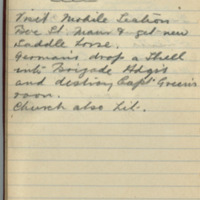 Visit Mobile Section
Bde St Maur & get new
Saddle horse.
Germans drop a Shell
into Brigade Hdqrs
and destroy Capt Green's
room.
Church also hit.